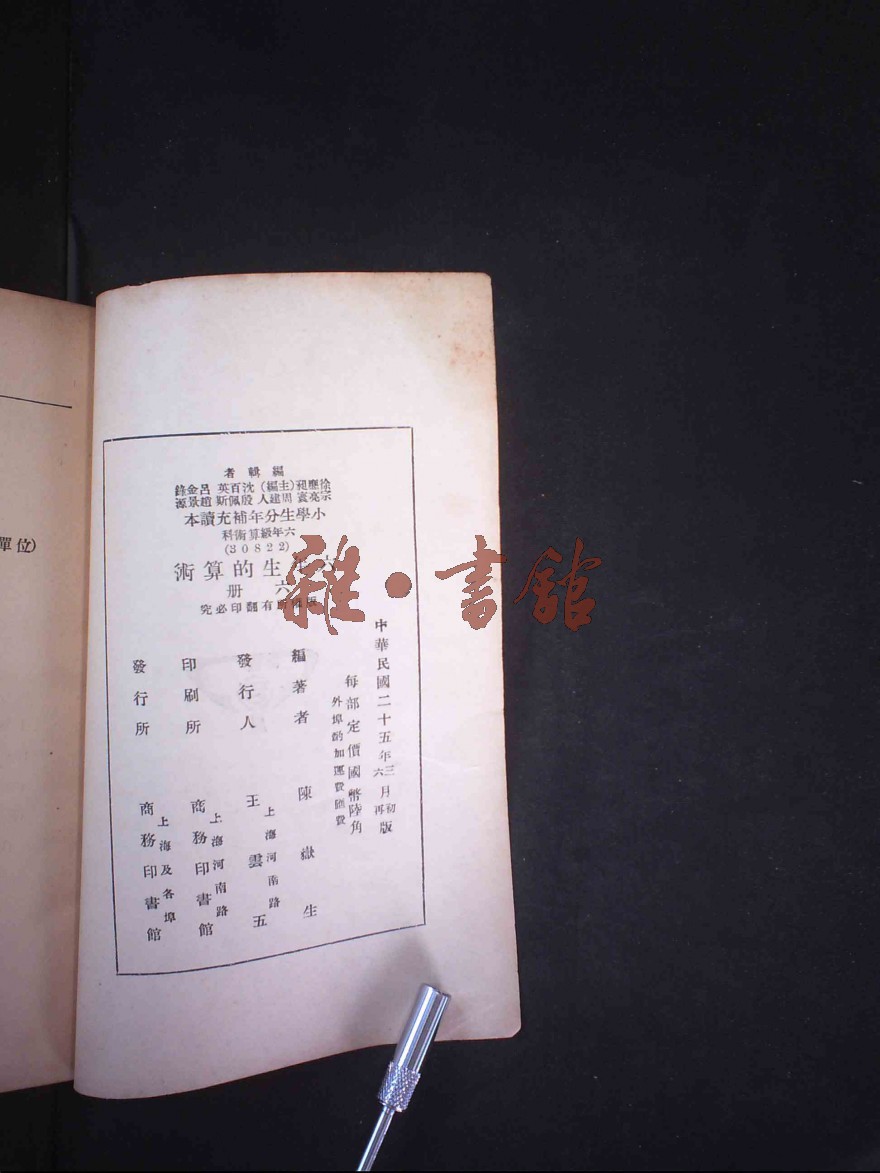 編輯者
徐應昶(主編) 沈百英 呂金錄
宗亮寰 周建人 殷佩斯 趙景源
小學生分年補充讀本
六年級算術科
(30822)
六年生的算術
六冊
版權所有翻印必究
中華民國二十五年三六月初再版
每部定價國幣陸角
外埠酌加運費匯費
編著者 陳嶽生
發行人 王雲五
上海河南路
印刷所 商務印書館
上海河南路
發行所 商務印書館
上海及各埠
單位)
雜·書館